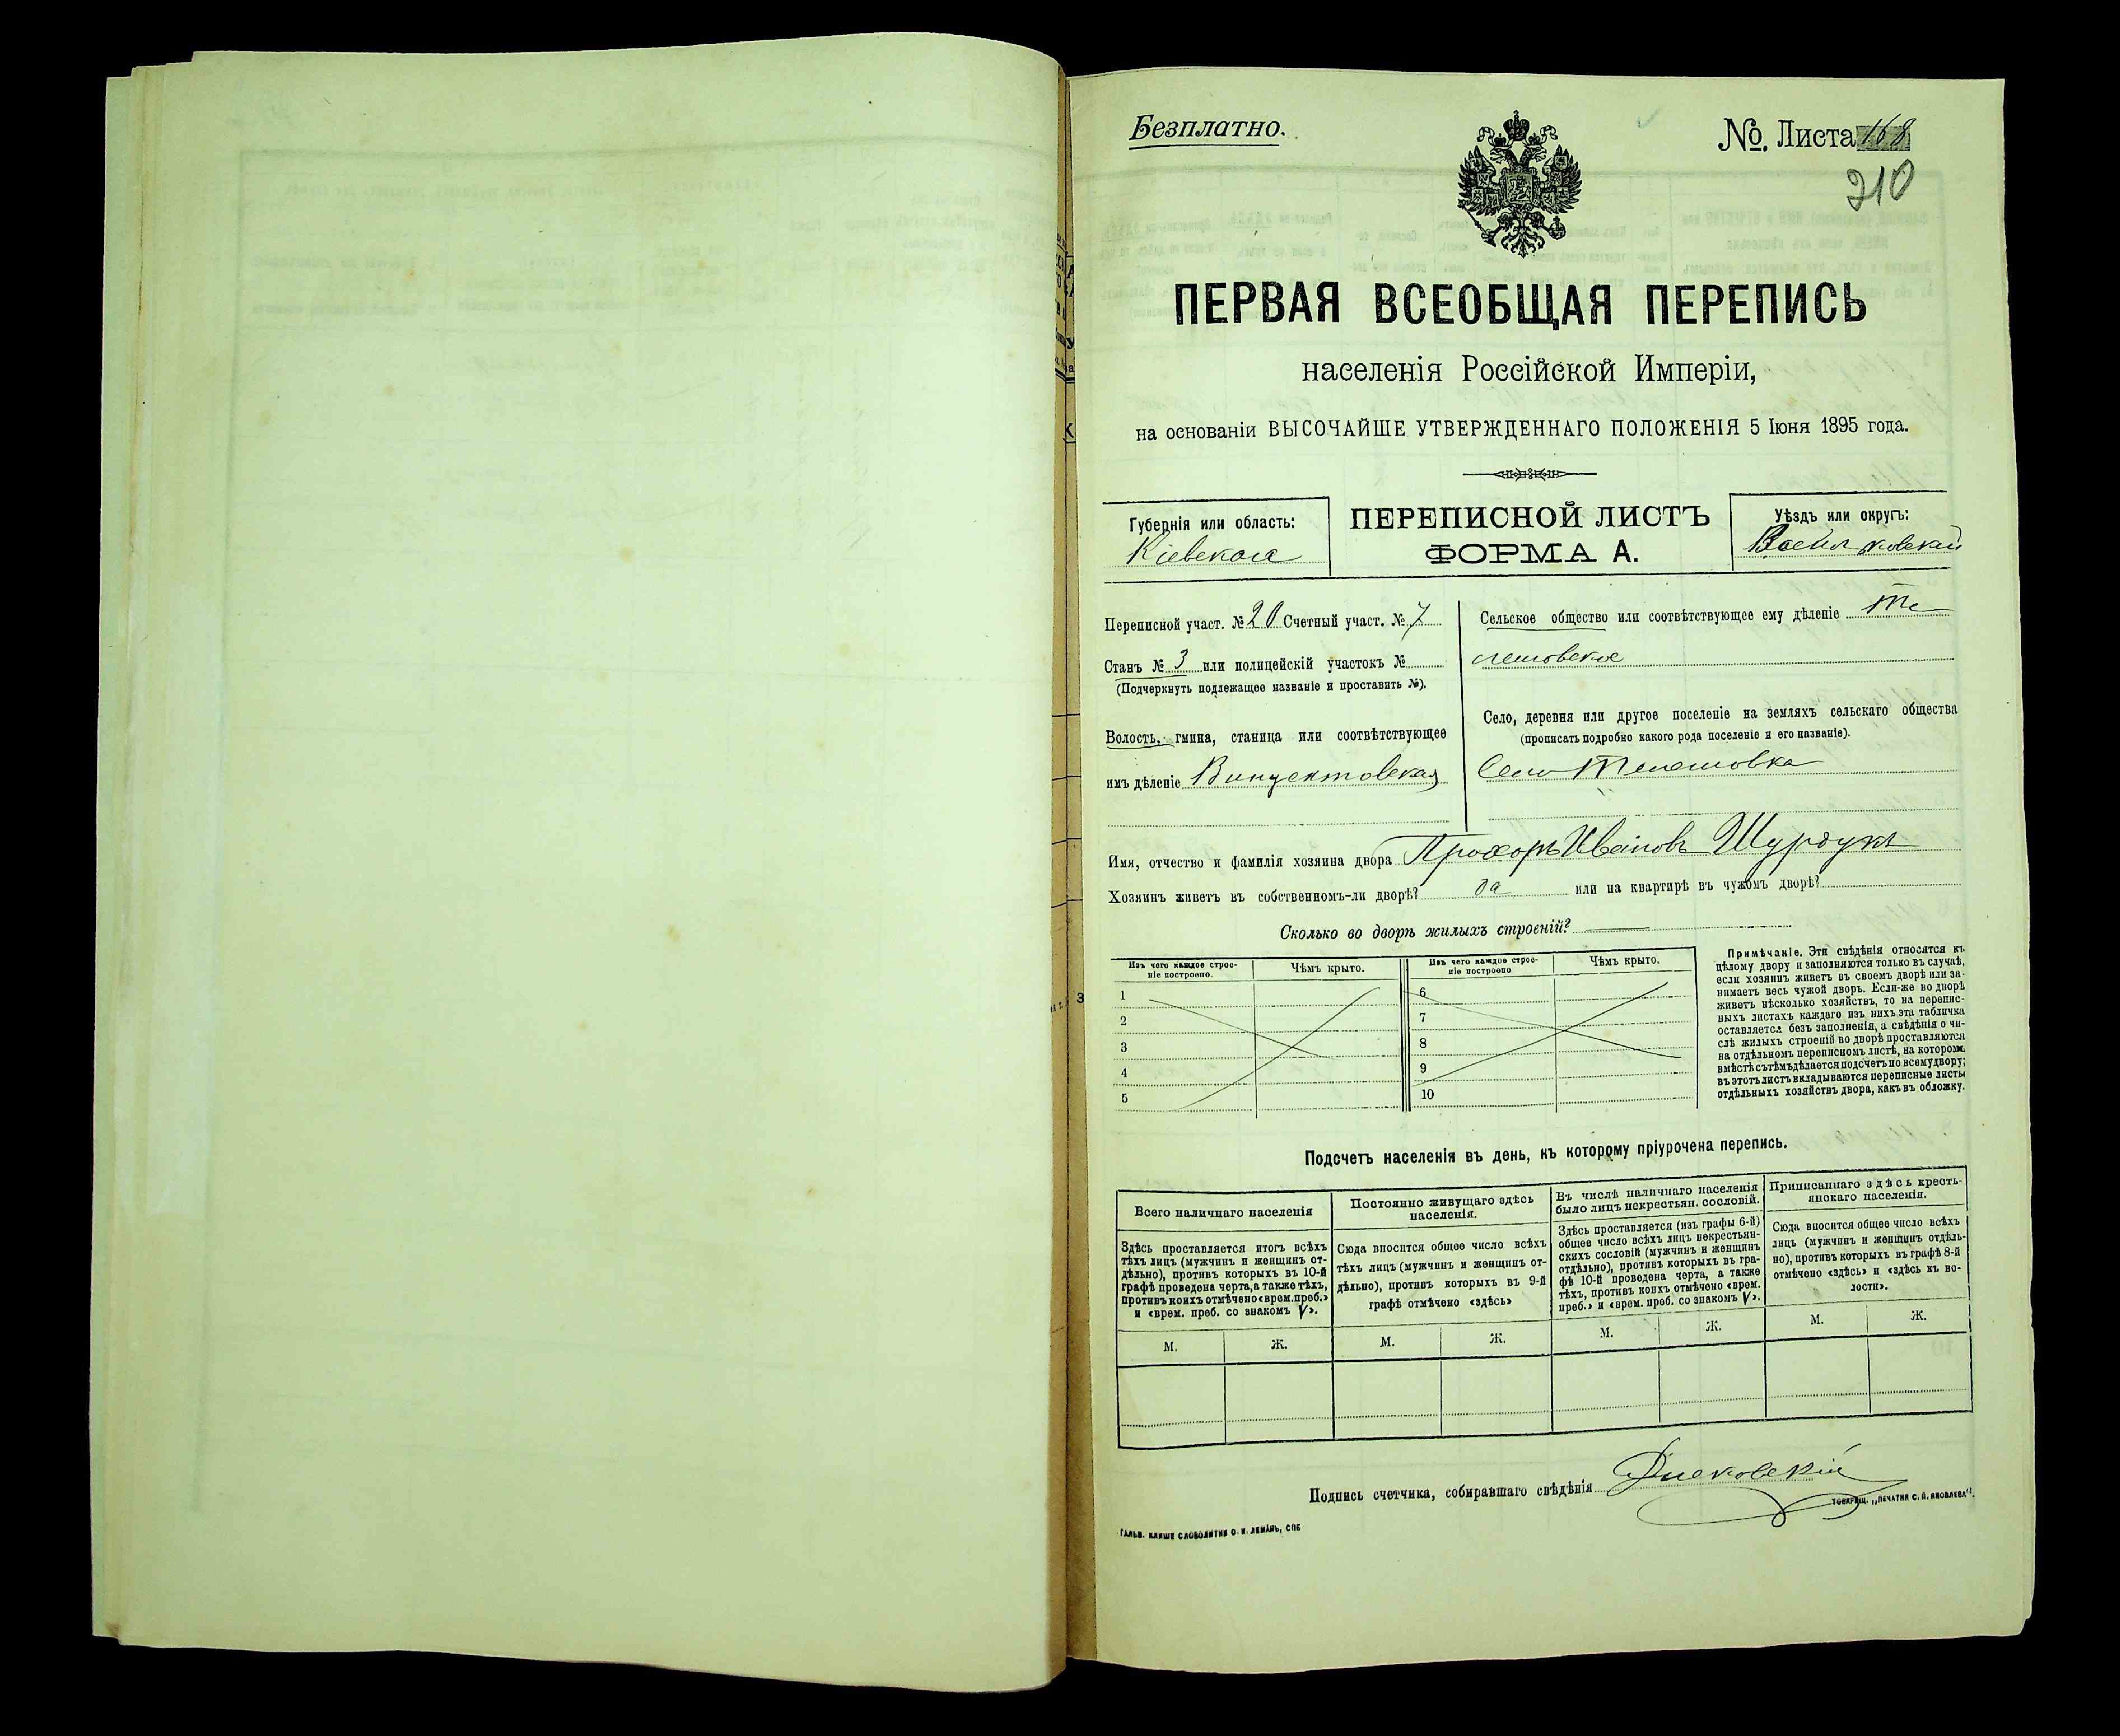 Безплатно.
№. Листа 168
210
ПЕРВАЯ ВСЕОБЩАЯ ПЕРЕПИСЬ
населенія Россійской Имперіи,
на основаніи ВЫСОЧАЙШЕ УТВЕРЖДЕННАГО ПОЛОЖЕНІЯ 5 Іюня 1895 года.
Губернія или область:
Кіевская
ПЕРЕПИСНОЙ ЛИСТЪ
ФОРМА А.
Уѣздъ или округъ:
Васильковскій
Переписной участ. № 20 Счетный участ. № 7
Станъ № 3 или полицейскій участокъ №
(Подчеркнуть подлежащее названіе и проставить №).
Волость, гмина, станица или соотвѣтствующее
имъ дѣленіе Винцентовская
Сельское общество или соотвѣтствующее ему дѣленіе Те
лешовское
Село, деревня или другое поселеніе на земляхъ сельскаго общества
(прописать подробно какого рода поселеніе и его названіе).
Село Телешовка
Имя, отчество и фамилія хозяина двора Прохоръ Ивановъ
Хозяинъ живетъ въ собственномъ-ли дворѣ? да или на квартирѣ въ чужомъ дворѣ?
Сколько во дворѣ жилыхъ строеній?
Изъ чего каждое строе-
ніе построено.
Чѣмъ крыто.
Изъ чего каждое строе-
ніе построено
Чѣмъ крыто.
1
2
3
4
5
6
7
8
9
10
Примѣчаніе. Эти свѣдѣнія относятся къ
цѣлому двору и заполняются только въ случаѣ,
если хозяинъ живетъ въ своемъ дворѣ или за-
нимаетъ весь чужой дворъ. Если-же во дворѣ
живетъ нѣсколько хозяйствъ, то на перепис-
ныхъ листахъ каждаго изъ нихъ эта табличка
оставляется безъ заполненія, а свѣдѣнія о чи-
слѣ жилыхъ строеній во дворѣ проставляются
на отдѣльномъ переписномъ листѣ, на которомъ
вмѣстѣ съ тѣмъ дѣлается подсчетъ по всему двору;
въ этотъ листъ вкладываются переписные листы
отдѣльныхъ хозяйствъ двора, какъ въ обложку.
Подсчетъ населенія въ день, къ которому пріурочена перепись.
Всего наличнаго населенія
Здѣсь проставляется итогъ всѣхъ
тѣхъ лицъ (мужчинъ и женщинъ от-
дѣльно), противъ которыхъ въ 10-й
графѣ проведена черта, а также тѣхъ,
противъ коихъ отмѣчено «врем. преб.»
и «врем. преб. со знакомъ V».
Постоянно живущаго здѣсь
населенія.
Сюда вносится общее число всѣхъ
тѣхъ лицъ (мужчинъ и женщинъ от-
дѣльно), противъ которыхъ въ 9-й
графѣ отмѣчено «здѣсь»
Въ числѣ наличнаго населенія
было лицъ некрестьян. сословій.
Здѣсь проставляется (изъ графы 6-й)
общее число всѣхъ лицъ некрестьян-
скихъ сословій (мужчинъ и женщинъ
отдѣльно), противъ которыхъ въ гра-
фѣ 10-й проведена черта, а также
тѣхъ, противъ коихъ отмѣчено «врем.
преб.» и «врем. преб. со знакомъ V».
Приписаннаго здѣсь кресть-
янскаго населенія.
Сюда вносится общее число всѣхъ
лицъ (мужчинъ и женщинъ отдѣль-
но), противъ которыхъ въ графѣ 8-й
отмѣчено «здѣсь» и «здѣсь къ во-
лости».
М. Ж. М. Ж. М. Ж. М. Ж.
Подпись счетчика, собиравшаго свѣдѣнія
ТОВАРИЩ. „ПЕЧАТНЯ С. П. ЯКОВЛЕВА".
ГАЛЬВ. КЛИШЕ СЛОВОЛИТНИ О. И. ЛЕМАНЪ, СПБ